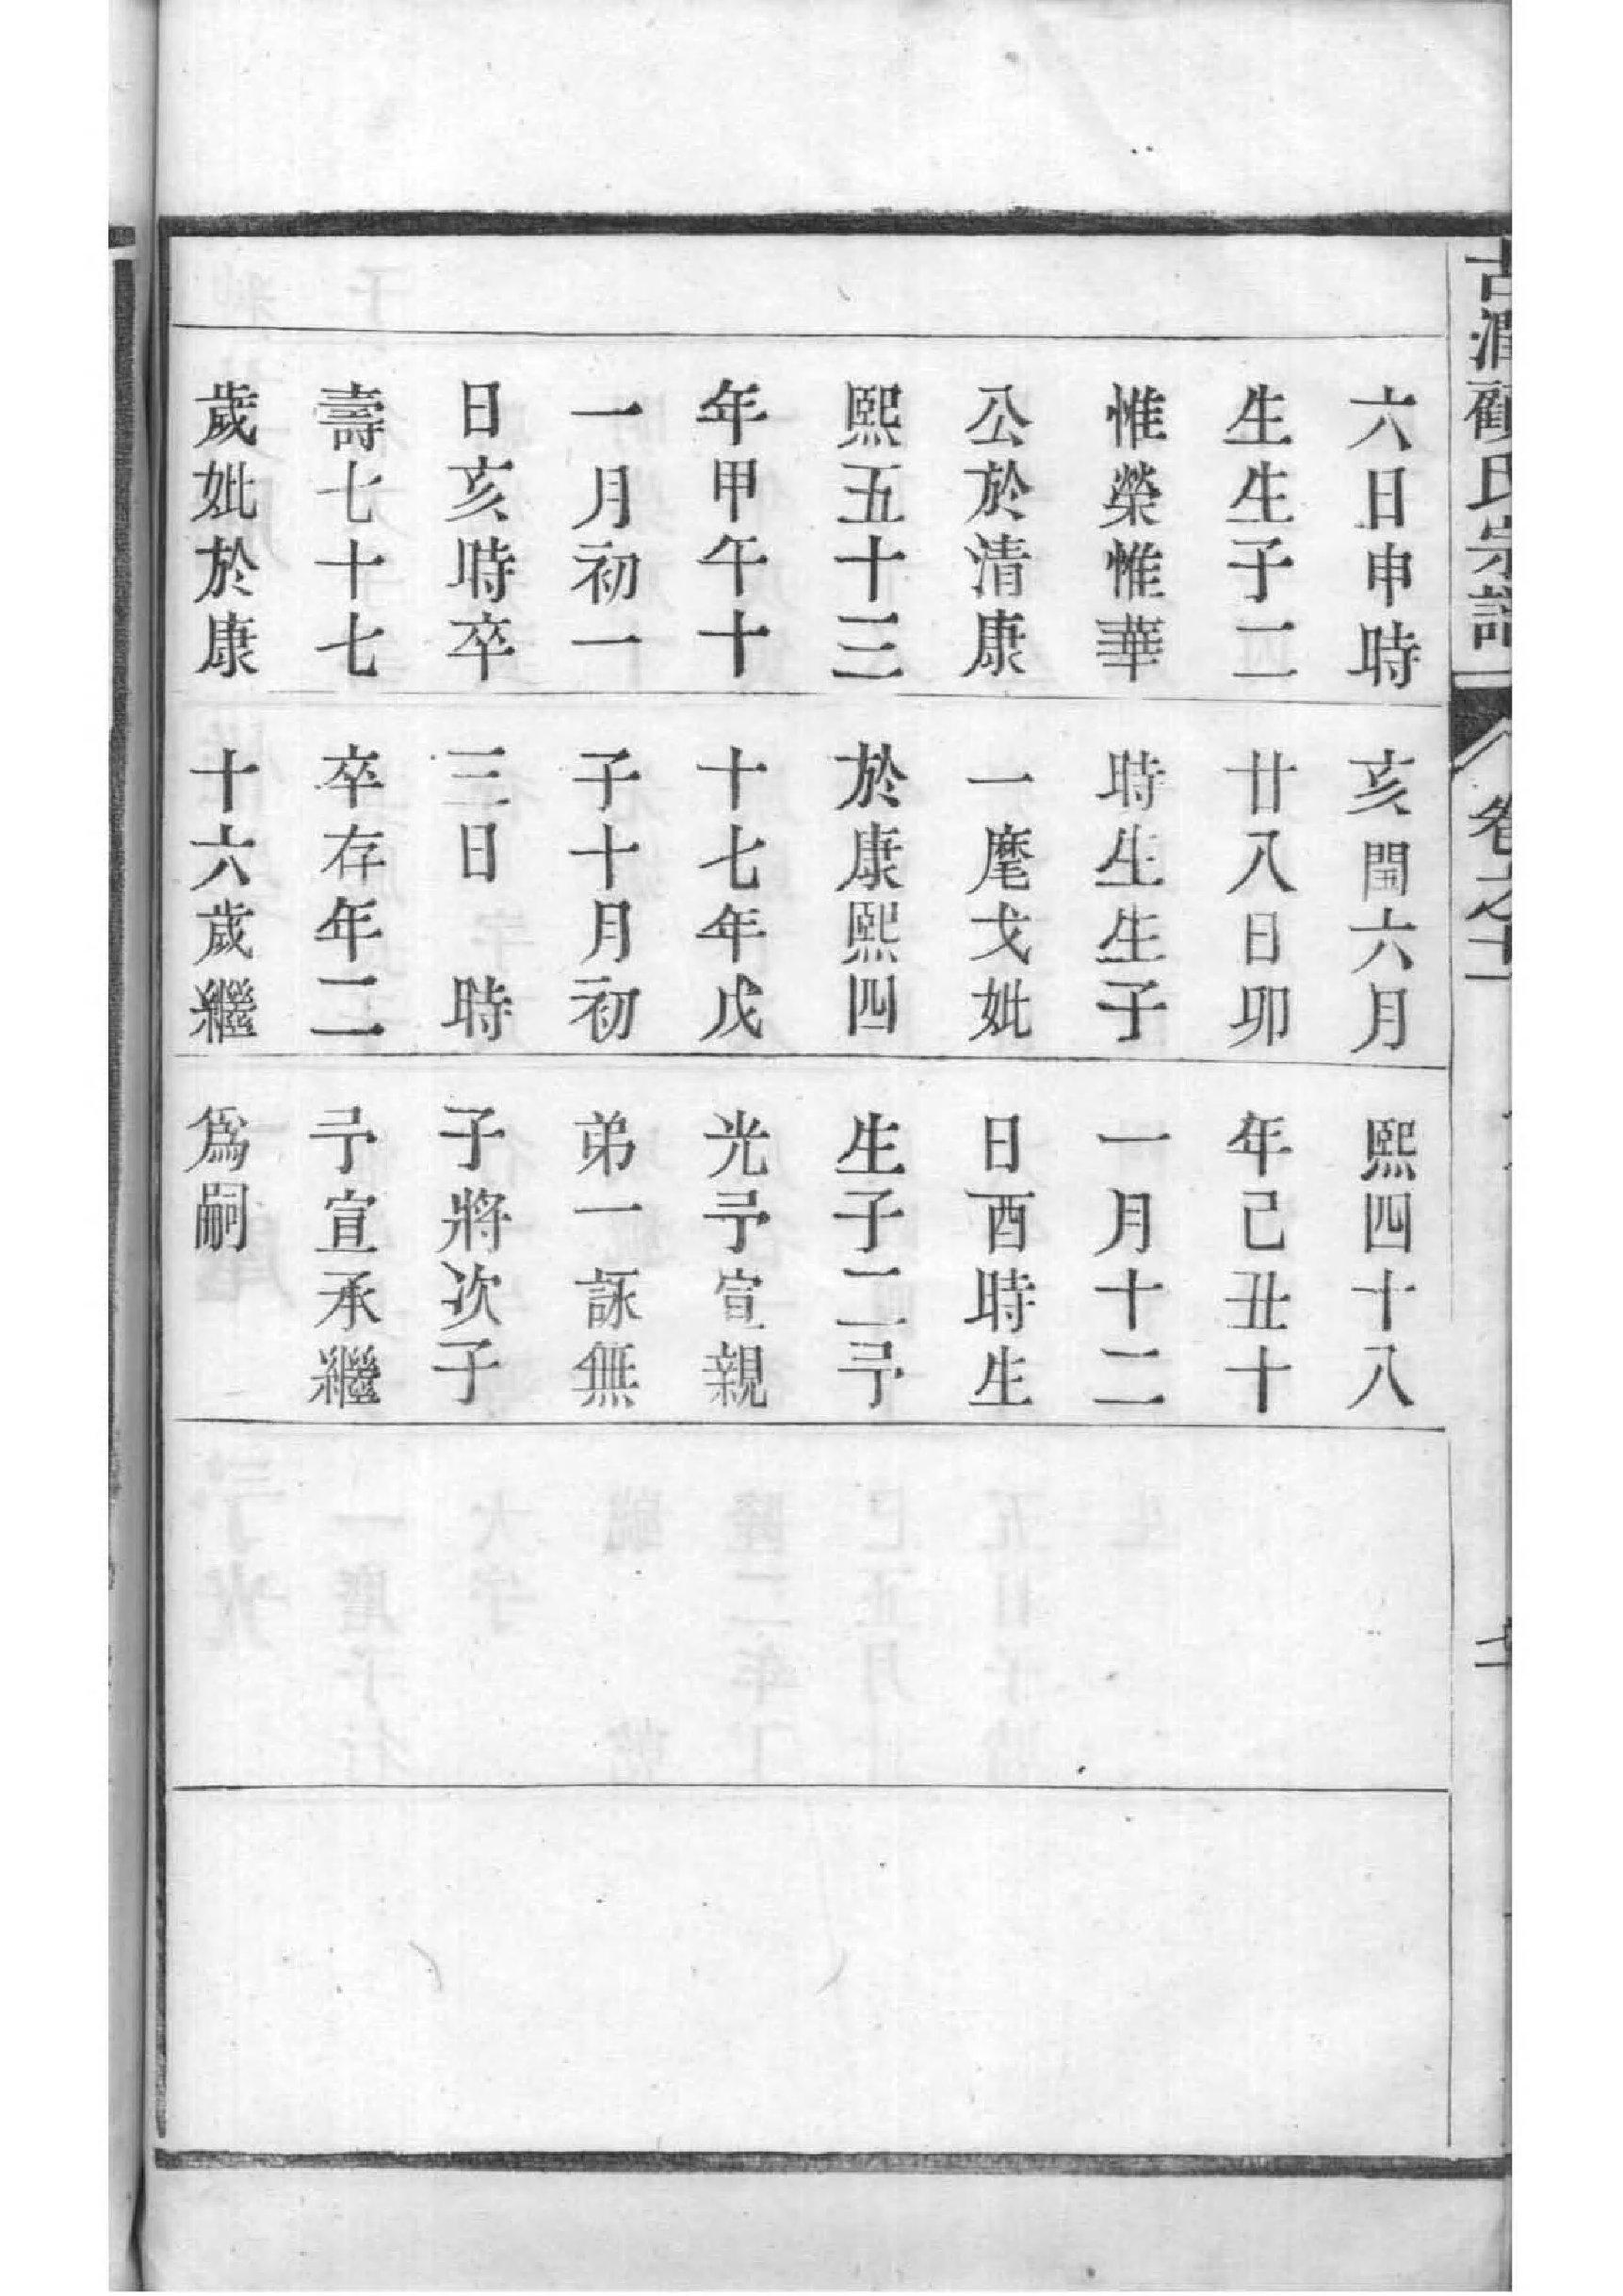 古潤顧氏宗譜
卷之十一
六日申時
生生子二
惟榮惟華
公於清康
熙五十三
年甲午十
一月初一
日亥時卒
壽七十七
歲妣於康
亥閏六月
廿八日卯
時生生子
一麾戈妣
於康熙四
十七年戊
子十月初
三日　時
卒存年二
十六歲繼
熙四十八
年己丑十
一月十二
日酉時生
生子二弓
光弓宣親
弟一詠無
子將次子
弓宣承繼
爲嗣